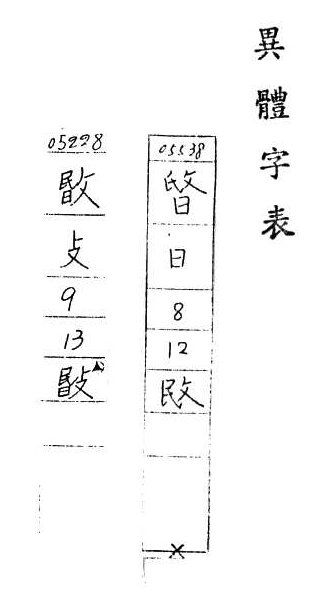 異體字表
05538
暋
日
8
12
敃
05228
敯
攴
9
13
敯